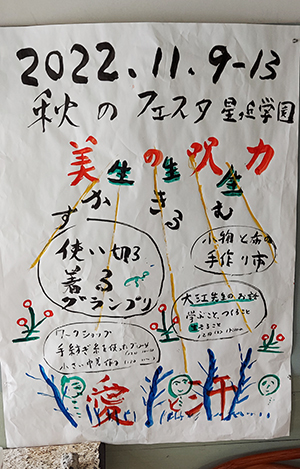 2022.11.9-13
秋のフェスタ 星ヶ丘学園
美生の生呪力
生かす
生きる
生む
使い切る
着る
グランプリ
小物と布の
手作り市
大江先生のお話
学ぶこと、つくること
生きること
ワークショップ
手紡ぎ糸を使った
小さい
愛 と 汗